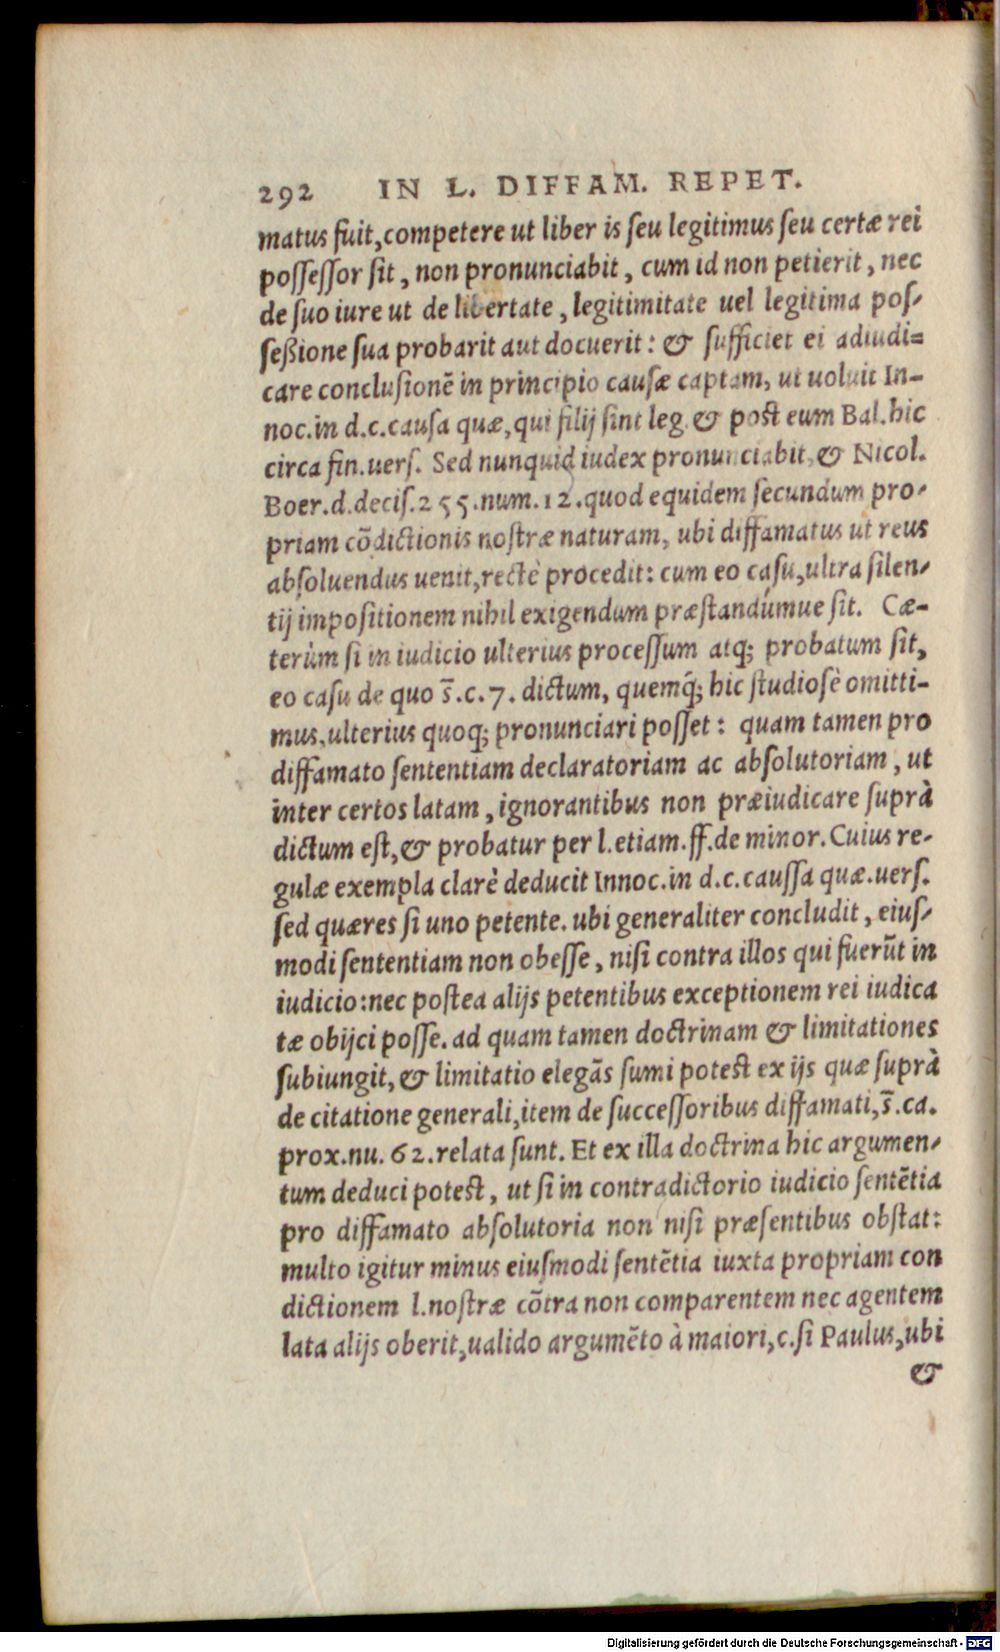 292 IN L. DIFFAM. REPET.
matus fuit, competere ut liber is ſeu legitimus ſeu certæ rei
poſſeſſor ſit, non pronunciabit, cum id non petierit, nec
de ſuo iure ut de libertate, legitimitate uel legitima poſ-
ſeßione ſua probarit aut docuerit: & ſufficiet ei adiudi=
care concluſionē in principio cauſæ captam, ut uoluit In-
noc. in d.c. cauſa quæ, qui filij ſint leg. & poſt eum Bal. hic
circa fin. uerſ. Sed nunquid iudex pronunciabit, & Nicol.
Boer. d. deciſ. 255. num. 12. quod equidem ſecundum pro-
priam cōdictionis noſtræ naturam, ubi diffamatus ut reus
abſoluendus uenit, rectè procedit: cum eo caſu, ultra ſilen-
tij impoſitionem nihil exigendum præſtandúmue ſit. Cæ-
terùm ſi in iudicio ulterius proceſſum atq; probatum ſit,
eo caſu de quo s̄.c.7. dictum, quemq́; hic ſtudioſè omitti-
mus, ulterius quoq; pronunciari poſſet: quam tamen pro
diffamato ſententiam declaratoriam ac abſolutoriam, ut
inter certos latam, ignorantibus non præiudicare ſuprà
dictum eſt, & probatur per l. etiam. ff. de minor. Cuius re-
gulæ exempla clarè deducit Innoc. in d.c. cauſſa quæ. uerſ.
ſed quæres ſi uno petente. ubi generaliter concludit, eiuſ-
modi ſententiam non obeſſe, niſi contra illos qui fuerūt in
iudicio: nec poſtea alijs petentibus exceptionem rei iudica
tæ obijci poſſe. ad quam tamen doctrinam & limitationes
ſubiungit, & limitatio elegās ſumi poteſt ex ijs quæ ſuprà
de citatione generali, item de ſucceſſoribus diffamati, s̄.ca.
prox. nu. 62. relata ſunt. Et ex illa doctrina hic argumen-
tum deduci poteſt, ut ſi in contradictorio iudicio ſentētia
pro diffamato abſolutoria non niſi præſentibus obſtat:
multo igitur minus eiuſmodi ſentētia iuxta propriam con
dictionem l. noſtræ cōtra non comparentem nec agentem
lata alijs oberit, ualido argumēto à maiori, c. ſi Paulus, ubi
&
Digitalisierung gefördert durch die Deutsche Forschungsgemeinschaft - DFG